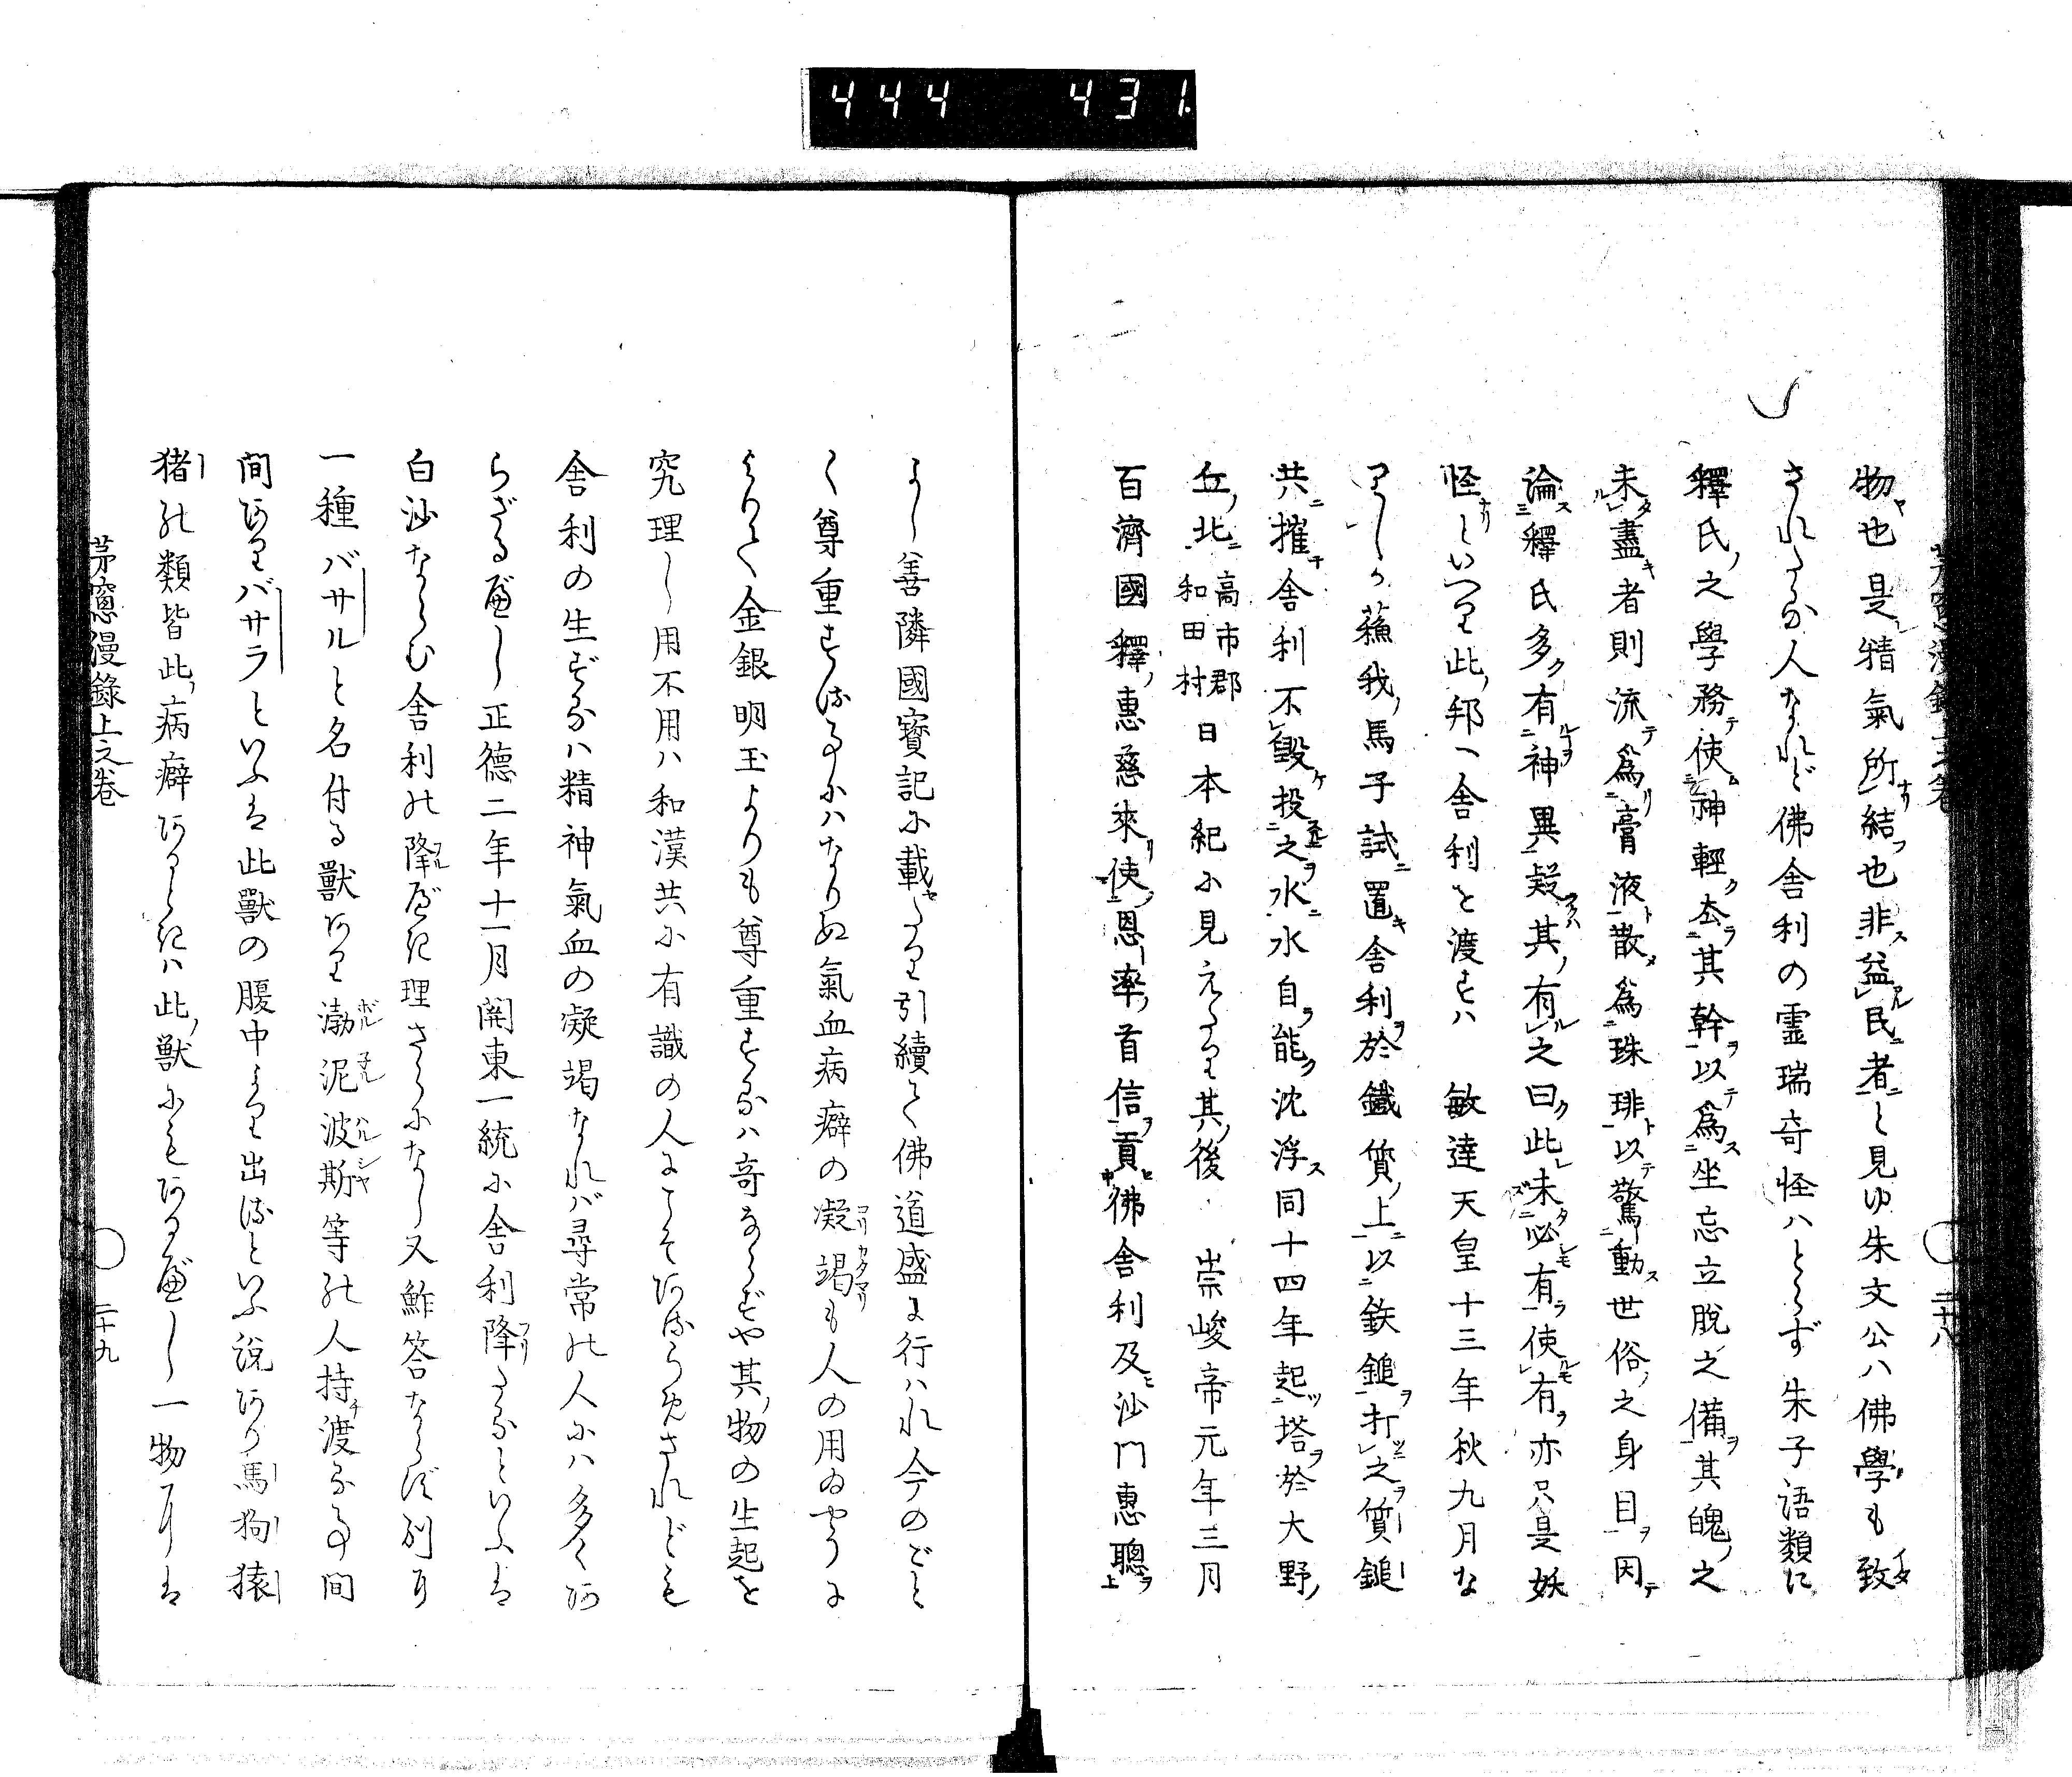 444 431.
茅窓漫錄上之卷 二十八
物也是精氣所結也非益民者と見ゆ朱文公ハ佛學も致
されたる人なれど佛舎利の霊瑞奇怪ハとらず朱子語類に
釋氏之學務使神輕去其幹以爲坐忘立脫之備其魄之
未盡者則流爲膏液散爲珠琲以驚動世俗之身目因
論釋氏多有神異疑其有之曰此未必有使有亦只是妖
怪といへり此邦へ舎利を渡すハ 敏達天皇十三年秋九月な
りしか蘓我馬子試置舎利於鐵質上以鉄鎚打之質鎚
共摧舎利不毀投之水水自能沈浮同十四年起塔於大野
丘北高市郡和田村日本紀に見えたり其後 崇峻帝元年三月
百濟國釋惠慈來使恩率首信貢佛舎利及沙門惠聰
よし善隣國寳記に載たり引續て佛道盛に行ハれ今のごと
く尊重する事にハなりぬ氣血病癖の凝竭も人の用ゐやうに
よりて金銀明玉よりも尊重するハ奇ならずや其物の生起を
究理し用不用ハ和漢共に有識の人にこそあるらめされども
舎利の生ずるハ精神氣血の凝竭なれバ尋常の人にハ多くあ
らざるべし正德二年十一月關東一統に舎利降たるといふは
白沙ならむ舎利の降べき理さらになし又鮓答ならず別に
一種バサルと名付る獸あり渤泥波斯等の人持渡る事間
間ありバサラといふは此獸の腹中より出るといふ說あり馬狗猿
猪の類皆此病癖あららきハ此獸にもあるべし一物
茅窓漫錄上之卷 二十九